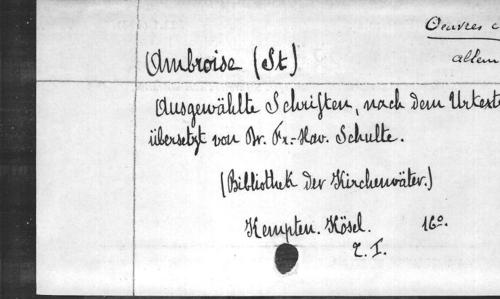 Oeuvres c
allem
Ambroise (St)
Ausgewählte Schriften, nach dem Urtext
übersetzt von Dr. Fr.-Xav. Schulte.
(Bibliothek der Kirchenväter.)
Kempten. Kösel. 16º.
T. I.